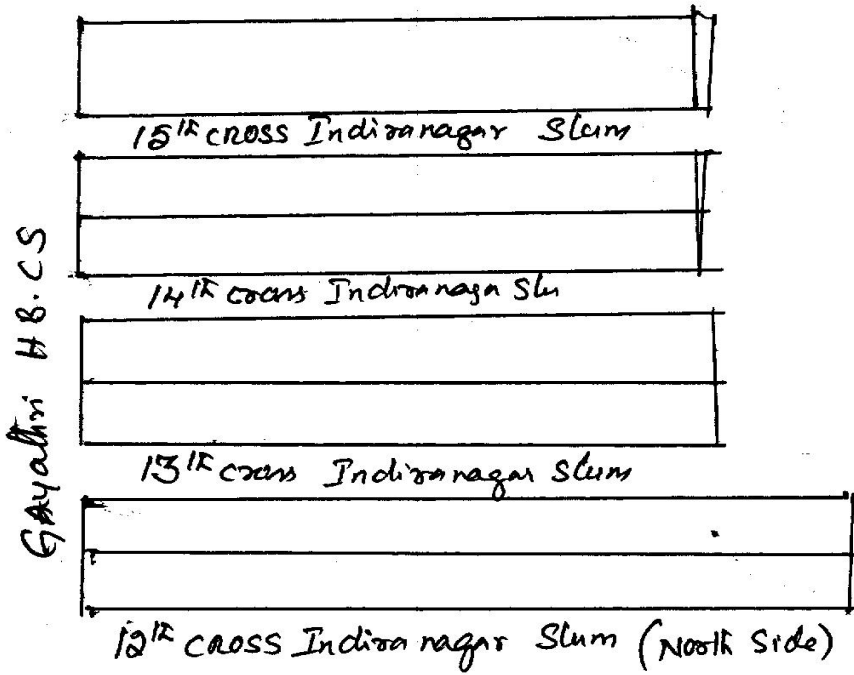 15th CROSS Indiranagar Slum
14th cross Indiranaga Slu
13th cross Indiranagar Slum
12th CROSS Indiranagar Slum (North Side)
Gayathri H B. CS